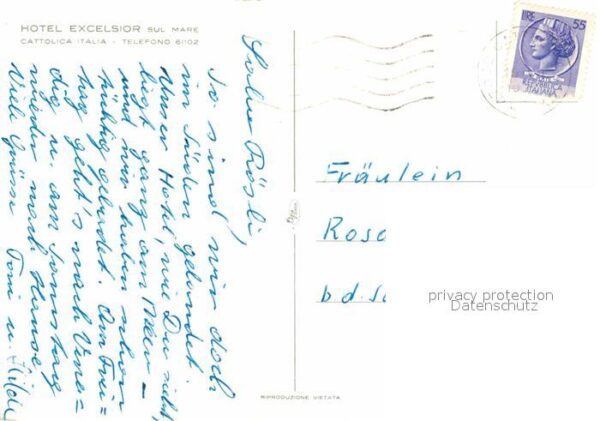 HOTEL EXCELSIOR SUL MARE
CATTOLICA ITALIA - TELEFONO 61102
Liebe Rösli,
so sind wir doch
im Süden gelandet.
Unser Hotel, wie Du siehst,
liegt ganz am Meer
und wir haben schon
tüchtig gebadet. Am Frei=
tag geht's nach Vene=
dig u. am Samstag
wieder nach Hause.
Viele Grüsse
Toni u. Hildi
LIRE 55
REPUBBLICA
ITALIANA
Fräulein
Rosa
b.d.Sc
privacy protection
Datenschutz
RIPRODUZIONE VIETATA